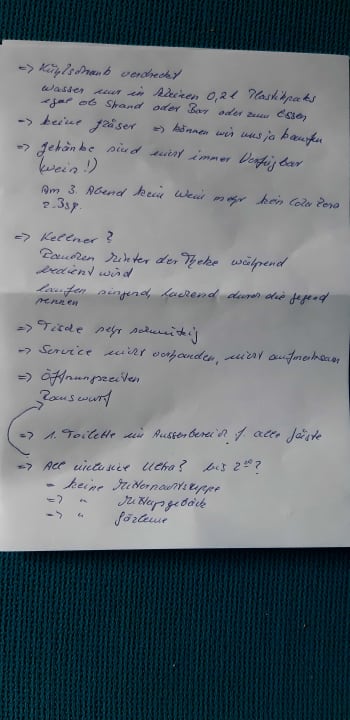 => Kühlschrank verdreckt
Wasser nur in kleinen 0,2 l Plastikpaks
egal ob Strand oder Bar oder zum Essen
=> keine Gläser => können wir uns ja kaufen
=> getränke sind nicht immer Verfügbar
(Wein!)
Am 3. Abend kein Wein mehr kein Cola Zero
z. Bsp.
=> Kellner?
Rauchen hinter der Theke während
bedient wird
laufen singend, lachend durch die gegend
rennen
=> Tische sehr schmutzig
=> Service nicht vorhanden, nicht aufmerksam
=> Öffnungszeiten
Rauswurf
=> 1. Toilette im Aussenbereich f. alle Gäste
=> All inclusive Ultra? bis 2⁰⁰?
= keine Mitternachtsuppe
=> " Mittagsgebäck
=> " Gözleme